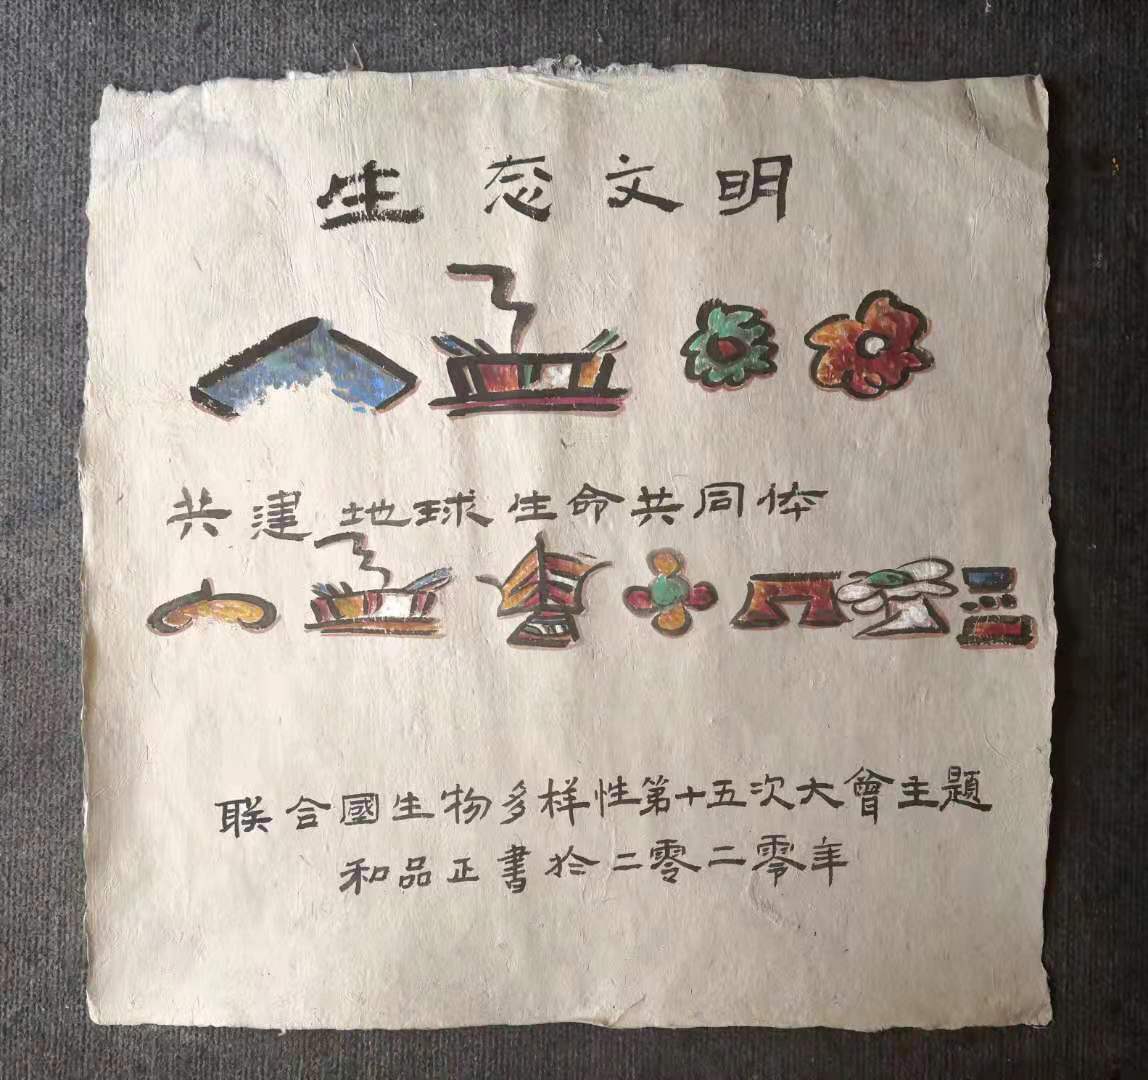 生态文明
共建地球生命共同体
联合國生物多样性第十五次大會主题
和品正書於二零二零年